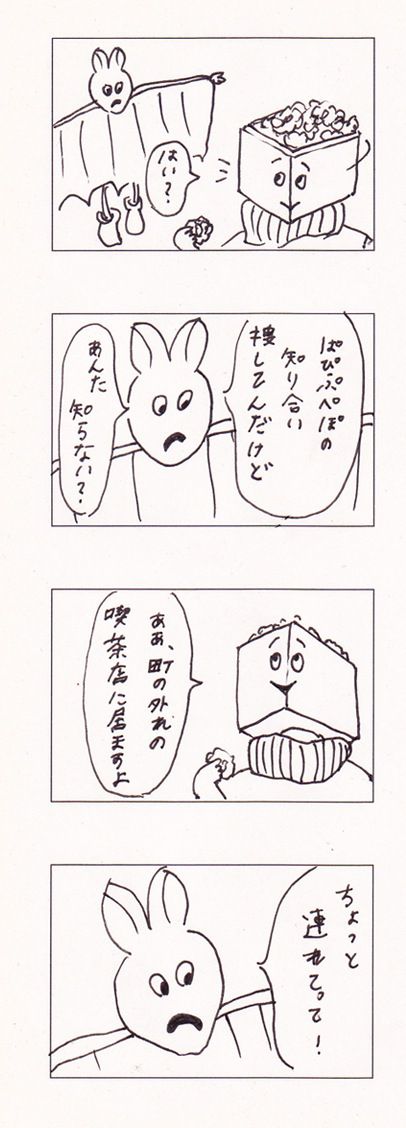 はい？
ぱぴぷぺぽの
知り合い
捜してんだけど
あんた
知らない？
ああ、町の外れの
喫茶店に居ますよ
ちょっと
連れてって！